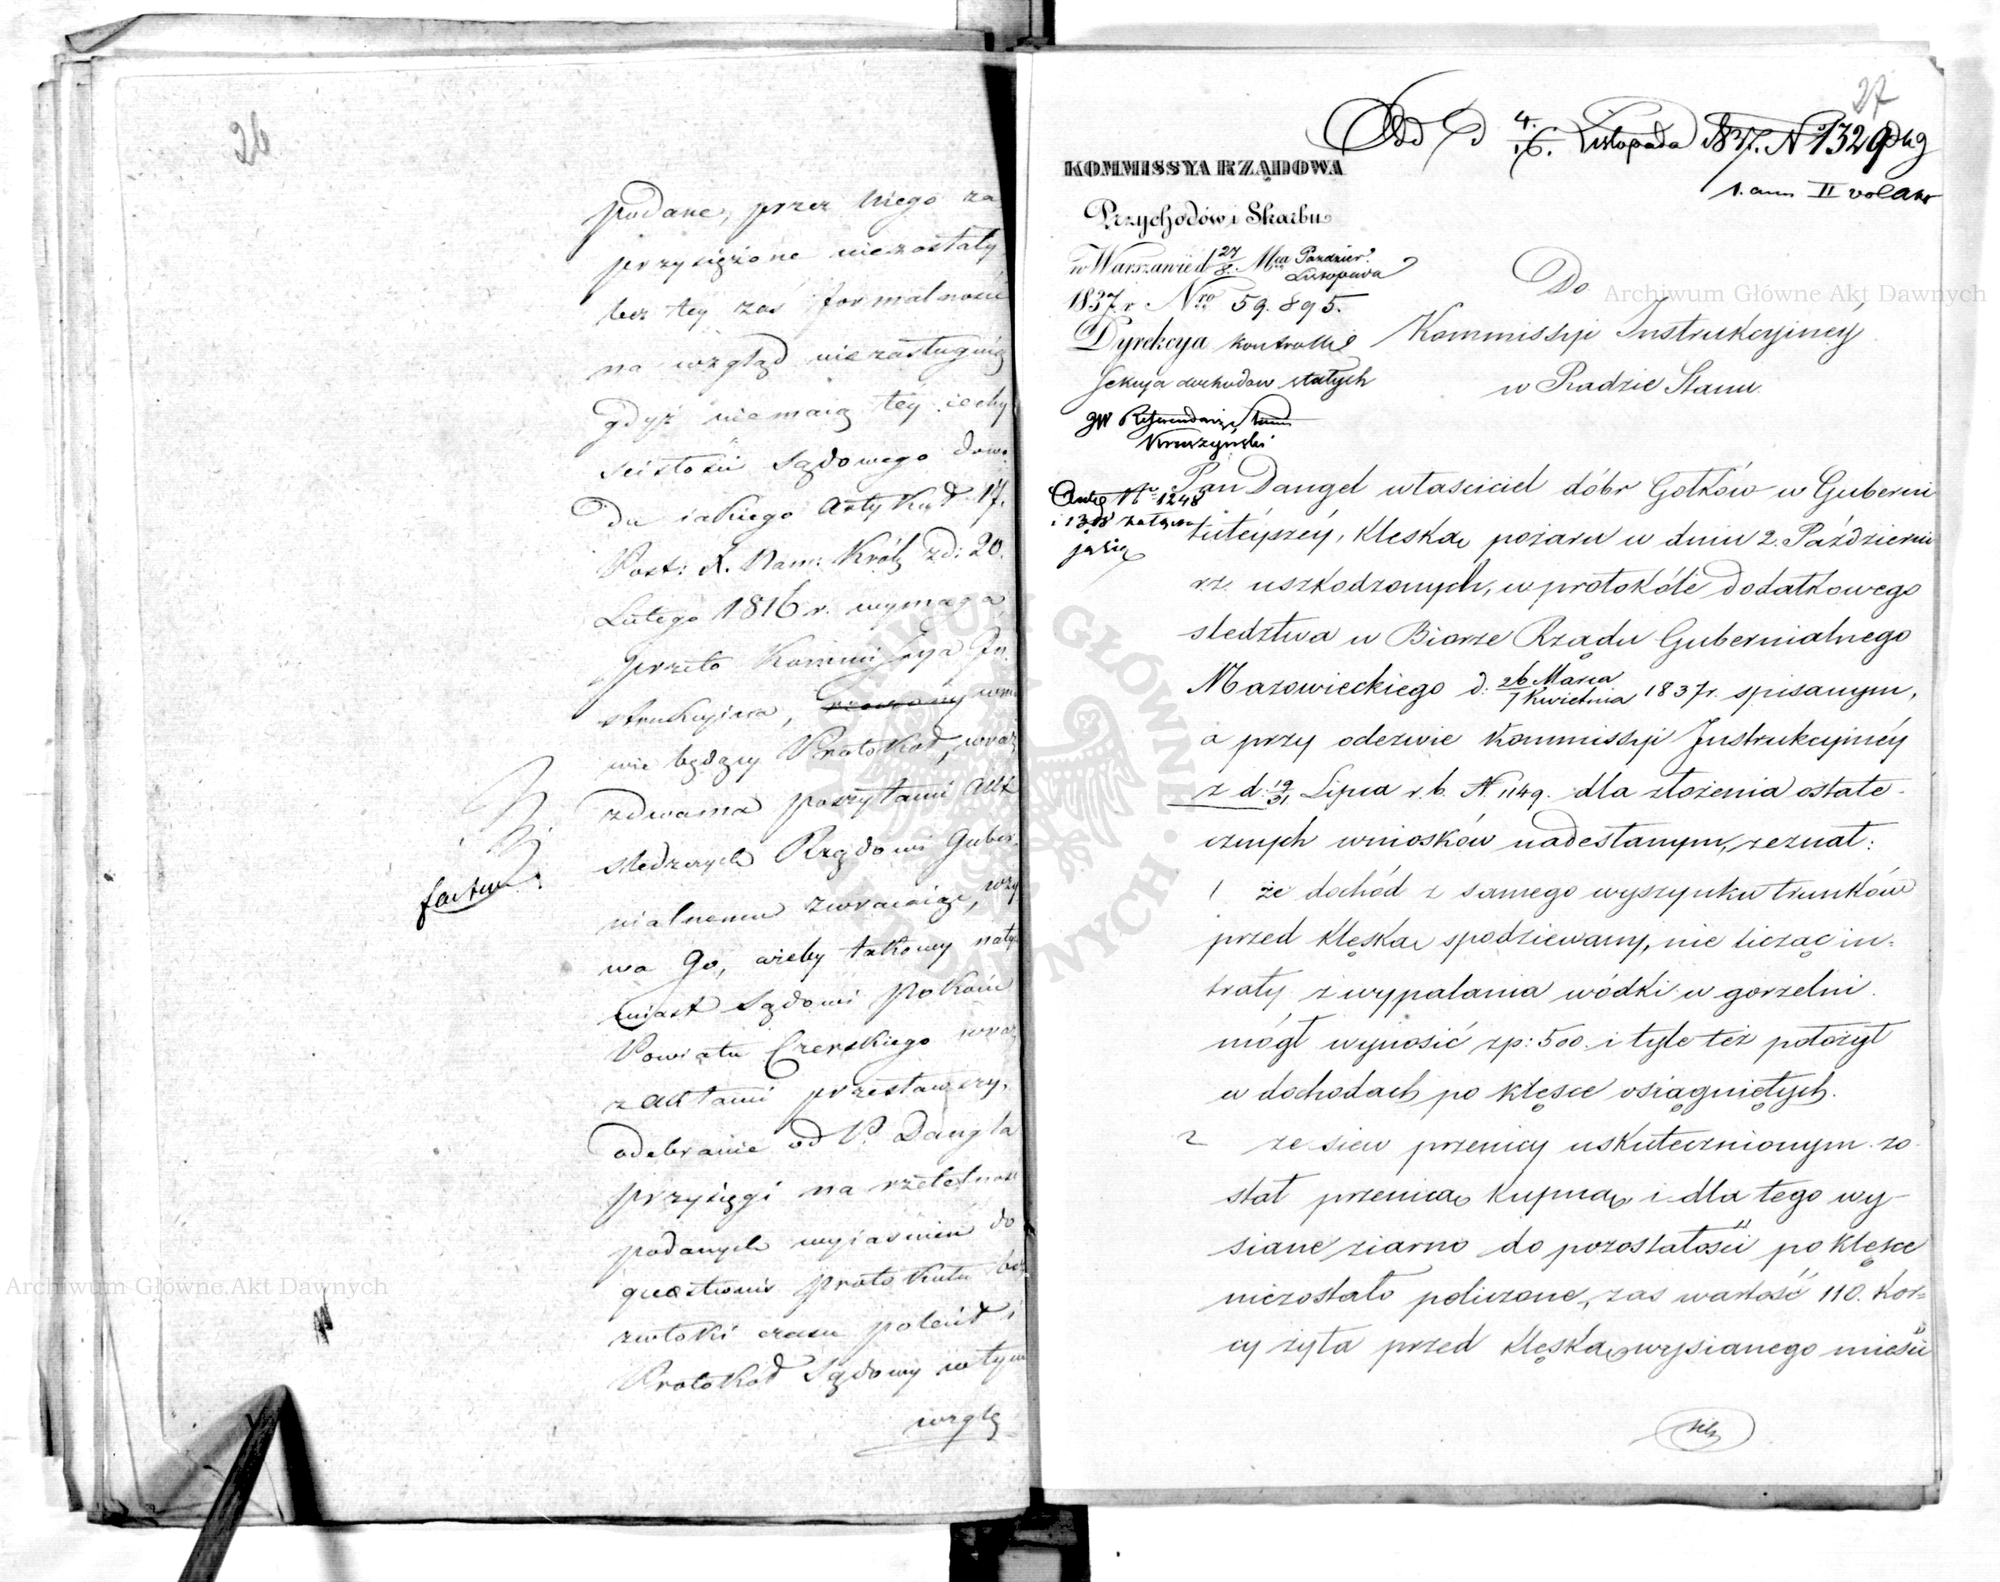 26
podane, przez niego za
przysiężone niezostały
bez tey zaś formalności
na wzgląd niezasługuią
gdyż niemaią téy cechy
ścisłości Sądowego dowo
du iakiego Artykuł 17.
Post: X. Nam: Król: z d: 20.
Lutego 1816 r. wymaga
przeto Kommissya In
strukcyina,
wie będący Protokół, wraz
zdwoma poszytami Akt
śledczych Rządowi Guber
nialnemu zwracaiąc, wzy
wa Go, ażeby takowy naty
miast Sądowi Pokoiu
Powiatu Czerskiego wraz
z aktami przesławszy,
odebranie od P. Dangla
przysięgi na rzetelność
podanych wyiaśnień do
quaestionis protokułu bez
zwłoki czasu polecił i
Protokół Sądowy w tym
wzglę
27
Od D 4./16. Listopada 1837. N 1329
II
KOMMISSYA RZĄDOWA
Przychodów i Skarbu
w Warszawie d 27/8. Mca Paździer. Listopada
1837. r Nro 59.895.
Dyrekcya kontrolli
Sekcya dochodów stałych
Referendarz Stanu
Kruszyński
Do
Kommissyi Instrukcyiney
w Radzie Stanu.
No 1248
Pan Dangel właściciel dóbr Gołków w Gubernii
tuteyszéy, klęską pożaru w dniu 2. Październi
rz. uszkodzonych, w protokóle dodatkowego
śledztwa w Biorze Rządu Gubernialnego
Mazowieckiego d: 26 Marca/7 Kwietnia 1837 r. spisanym,
a przy odezwie Kommissyi Instrukcyjnéy
z d. 19/31 Lipca r. b. N. 1149. dla złożenia ostate-
cznych wniosków nadesłanym, zeznał:
1 że dochód z samego wyszynku trunków
przed klęską spodziewany, nie licząc in=
traty z wypalania wódki w gorzelni
mógł wynosić zp: 500. i tyle też położył
w dochodach po klęsce osiągniętych.
2 że siew pszenicy uskutecznionym zo
stał pszenicą kupną i dla tego wy-
siane ziarno do pozostałości po klęsce
niezostało policzone, zaś wartość 110. kor=
cy żyta przed klęską wysianego mieści
Archiwum Główne Akt Dawnych
Archiwum Główne Akt Dawnych
ARCHIWUM GŁÓWNE AKT DAWNYCH